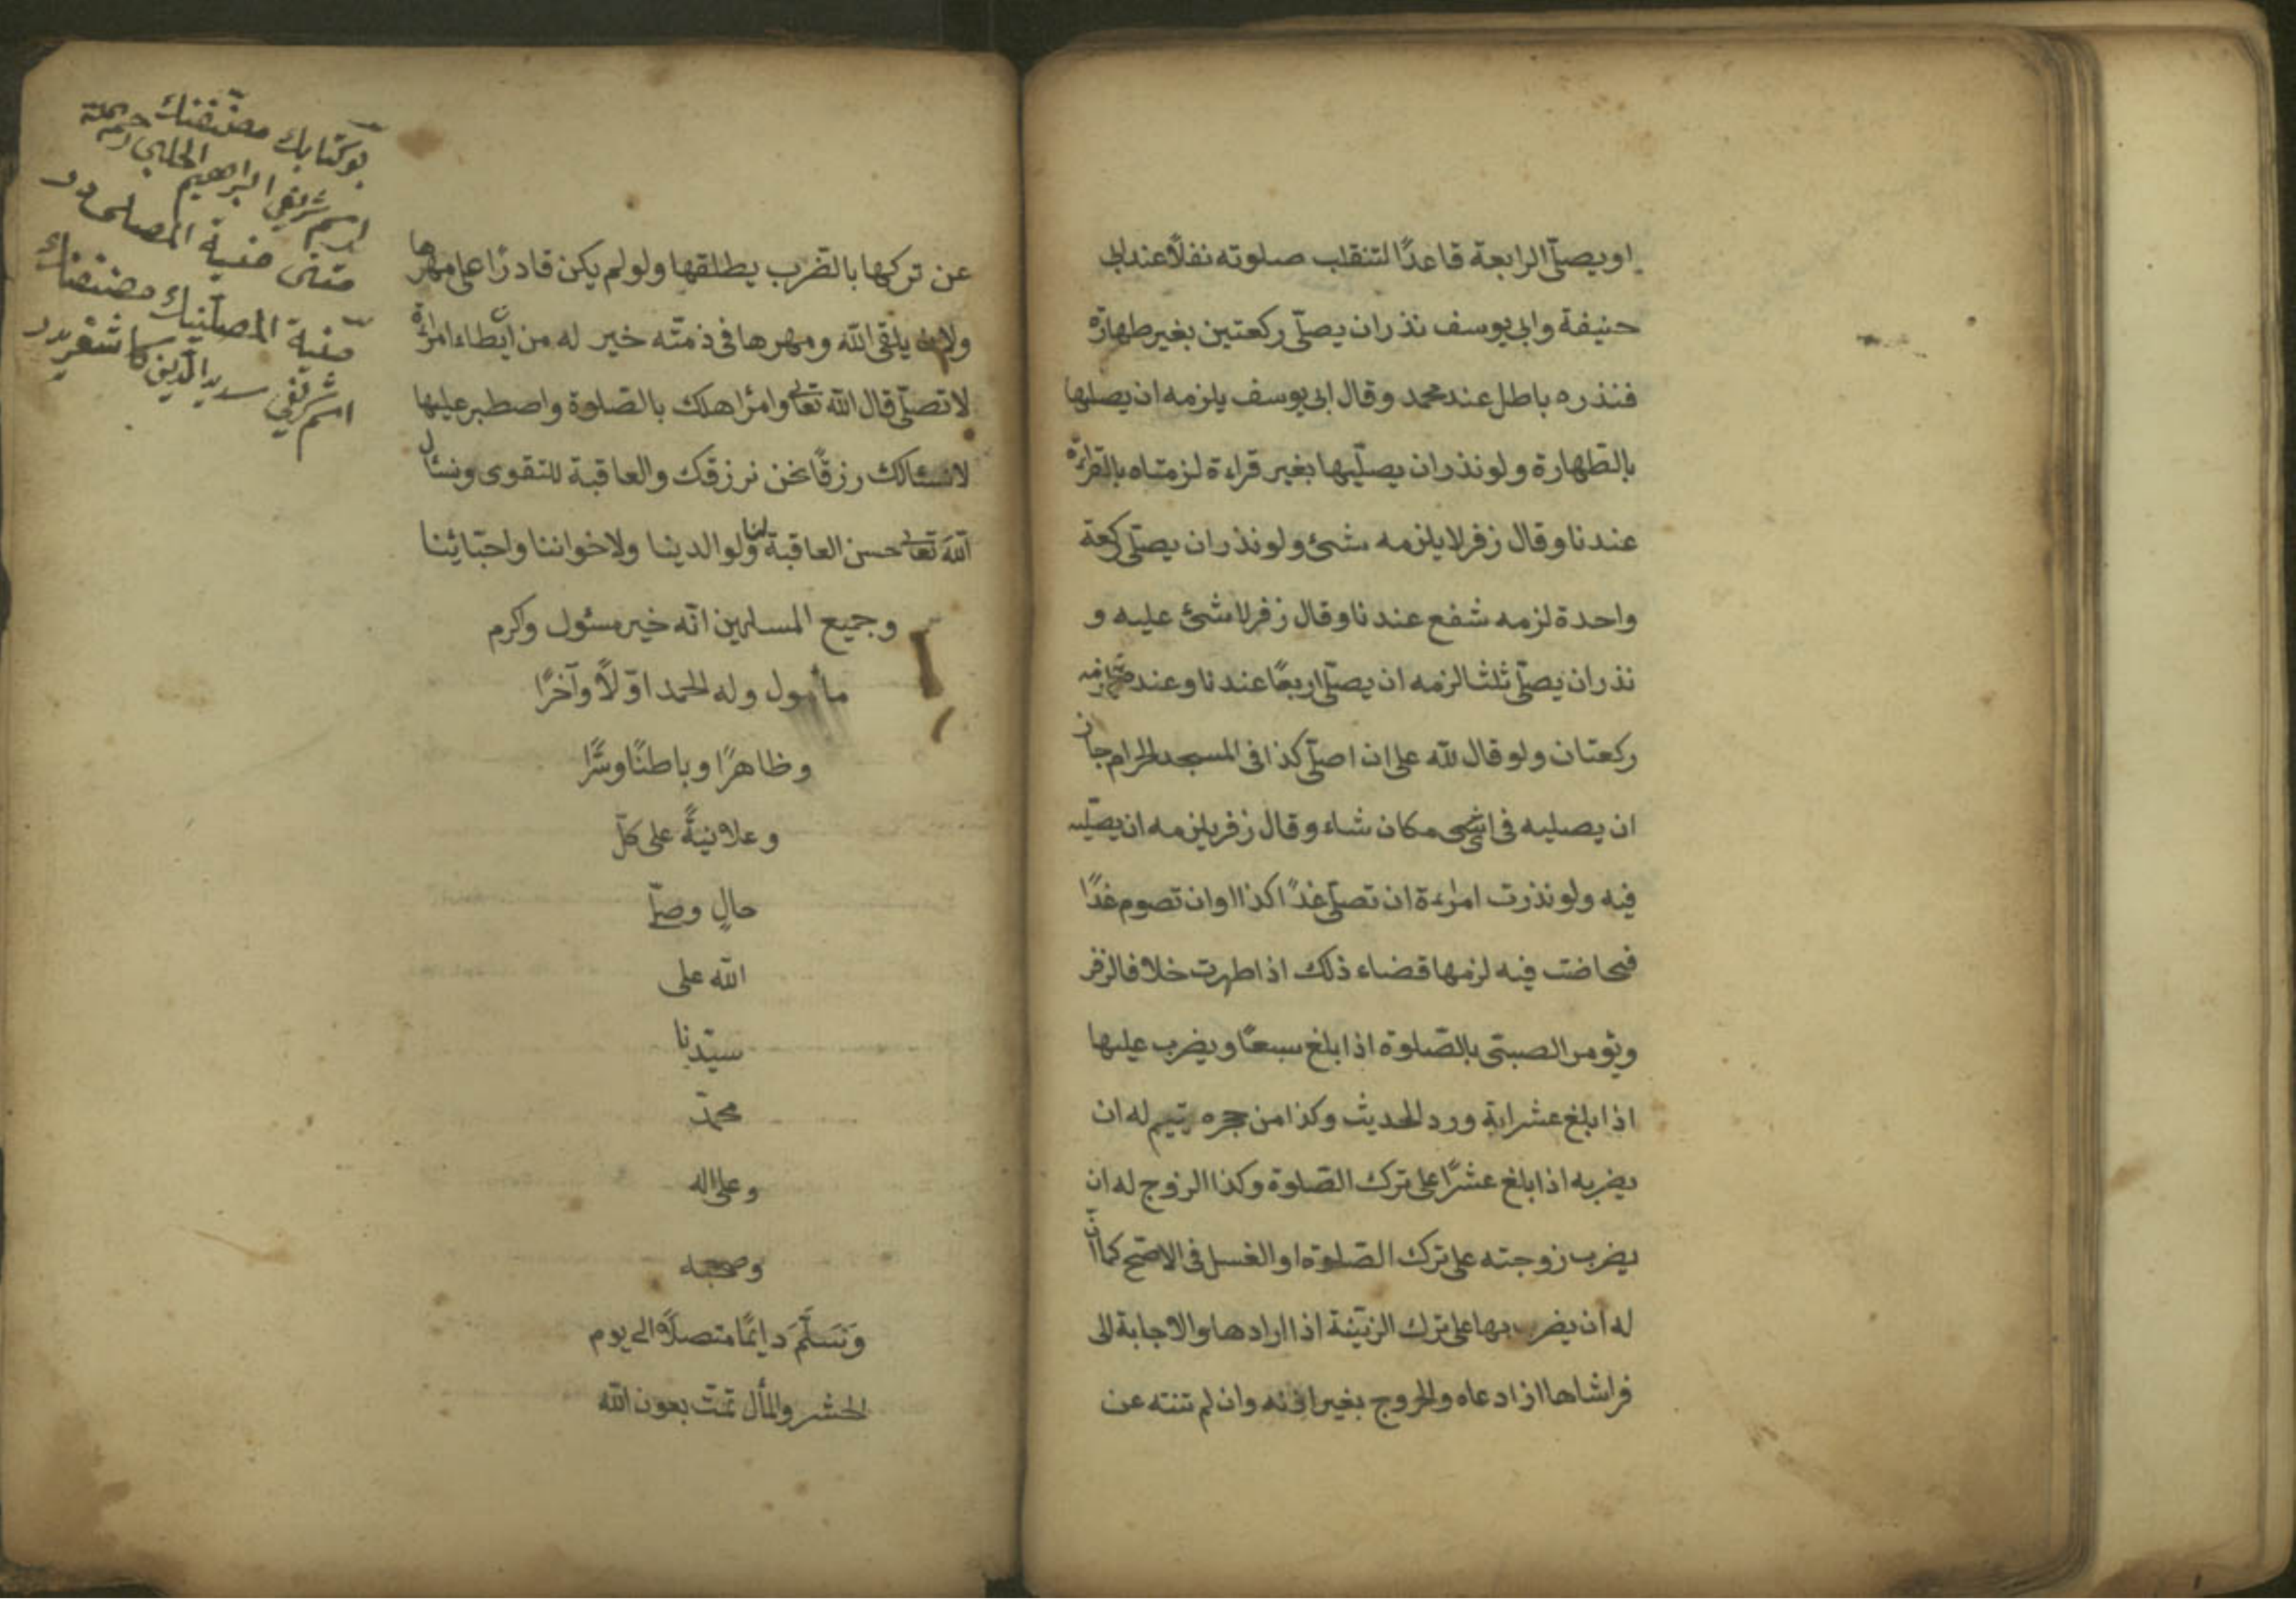 او يصلّى الرابعة قاعدًا لتنقلب صلوته نفلًا عند ابى
حنيفة وابى يوسف نذر ان يصلّى ركعتين بغير طهارة
فنذره باطل عند محمد وقال ابى يوسف يلزمه ان يصليها
بالطّهارة ولو نذر ان يصلّيها بغير قراءة لزمتاه بالقراءة
عندنا وقال زفر لا يلزمه شئ ولو نذر ان يصلّى ركعة
واحدة لزمه شفع عندنا وقال زفر لا شئ عليه و
نذر ان يصلّى ثلثا لزمه ان يصلّى اربعًا عندنا وعند
ركعتان ولو قال لله على ان اصلّى كذا فى المسجد الحرام جاز
ان يصليه فى اىّ مكان شاء وقال زفر يلزمه ان يصلّيه
فيه ولو نذرت امرءة ان تصلّى غدًا كذا اوان تصوم غدًا
فحاضت فيه لزمها قضاء ذلك اذا طهرت خلافا لزفر
ويؤمر الصبىّ بالصّلوة اذا بلغ سبعًا ويضرب عليها
اذا بلغ عشرا به ورد الحديث وكذا من حجره يتيم له ان
يضربه اذا بلغ عشرًا على ترك الصّلوة وكذا الزوج له ان
يضرب زوجته على ترك الصّلوة او الغسل فى الاصّح كما انّ
له ان يضربها على ترك الزّينة اذا ارادها والاجابة الى
فراشاها اذا دعاه والخروج بغير اذنه وان لم تنته عن
عن تركها بالضّرب يطلقها ولو لم يكن قادرًا على مهرها
ولان يلقى الله ومهرها فى ذمّته خير له من ان يطاء امرأة
لا تصلّى قال الله تعالى وامر اهلك بالصّلوة واصطبر عليها
لا نسئالك رزقًا نحن نرزقك والعاقبة للتقوى ونسئال
الله تعالى حسن العاقبة لنا ولوالدينا ولاخواننا واحبّائنا
وجميع المسلمين انّه خير مسئول وكرم
مأمول وله الحمد اوّلًا وآخرًا
وظاهرًا وباطنًا وسًّرا
وعلانيةً على كلّ
حالٍ وصلّى
الله على
سيّدنا
محمّد
وعلى اله
وصحبه
وَنَسَلَّمَ دايمًا متصلًا الى يوم
الحشر والمأل تمّت بعون الله
بو كتابك مصنّفنك
اسم شريفى ابراهيم الحلبى
متنى منية المصلى در
منية المصلّينك مصنفنك
اسم شريفى سديد الدّين كاشغريدر